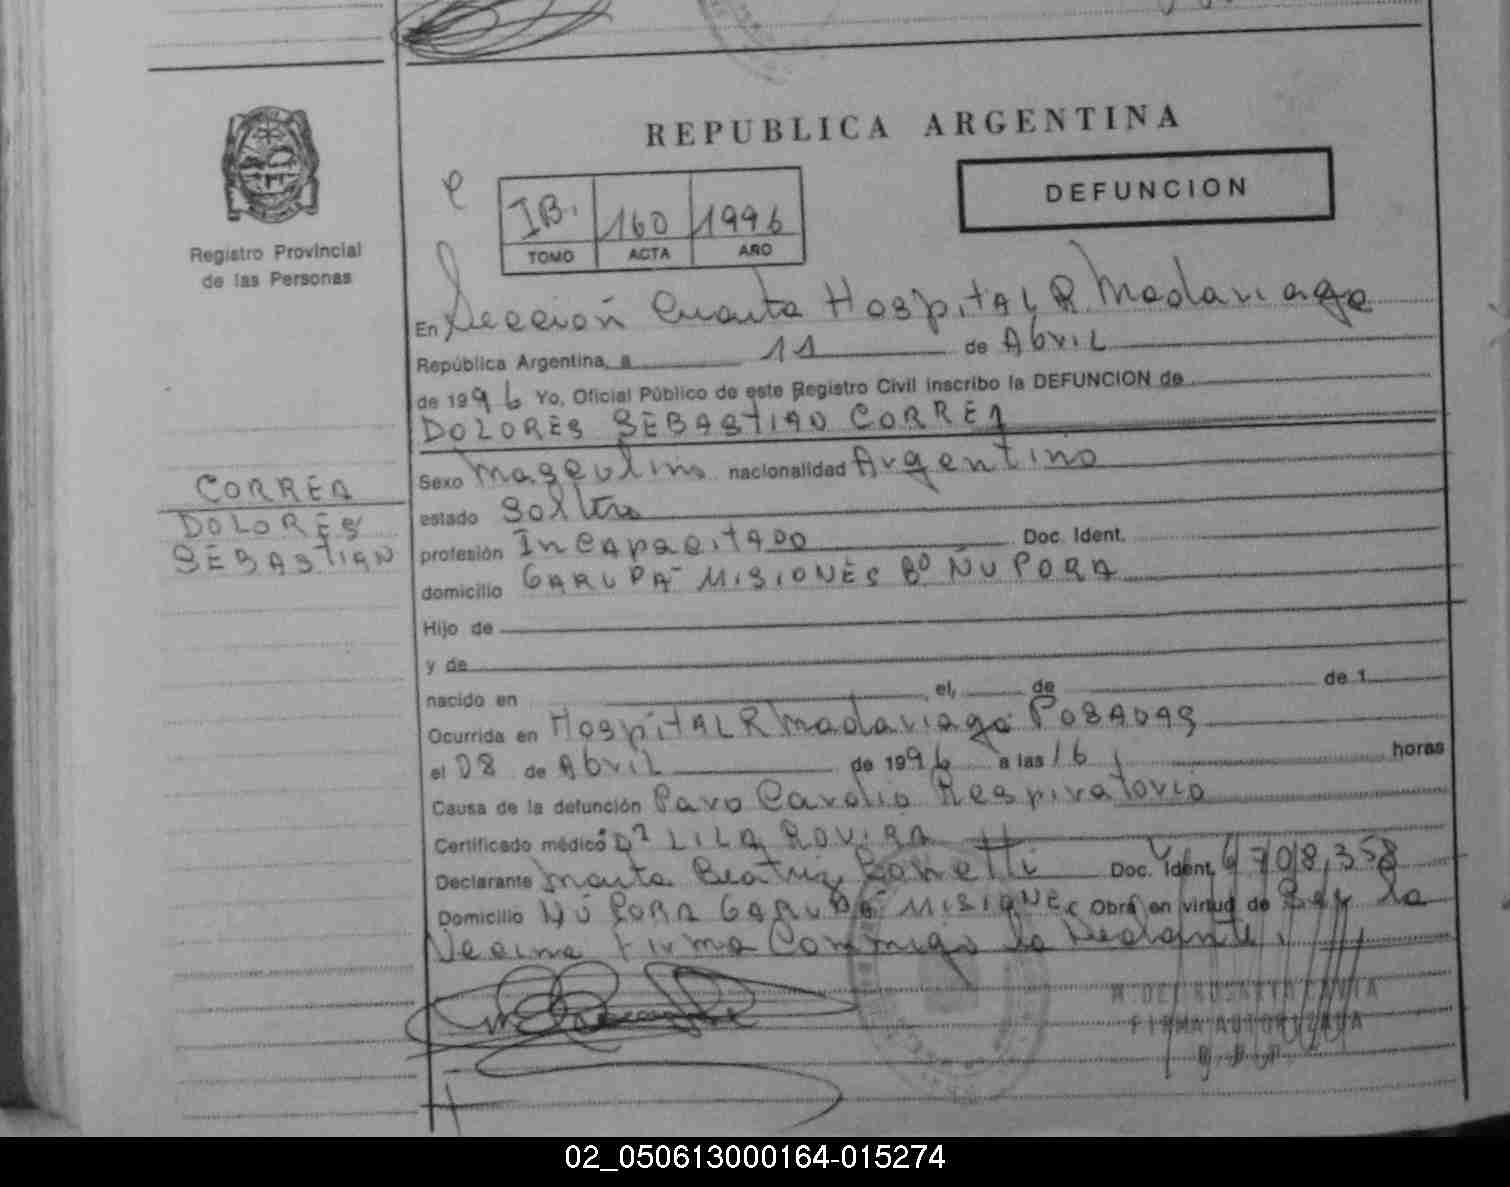 REPUBLICA ARGENTINA
DEFUNCION
IB. 160 1996
TOMO ACTA AÑO
Registro Provincial
de las Personas
En Sección Cuarta Hospital R Madariaga
República Argentina, a 11 de Abril
de 1996 Yo, Oficial Público de este Registro Civil inscribo la DEFUNCION de
DOLORES SEBASTIAN CORREA
CORREA
DOLORES
SEBASTIAN
Sexo Masculino nacionalidad Argentino
estado Soltero
profesión Incapacitado Doc. Ident.
domicilio GARUPA - MISIONES Bº ÑU PORA
Hijo de
y de
nacido en el, de de 1
Ocurrida en Hospital R Madariaga Posadas
el 08 de Abril de 1996 a las 16 horas
Causa de la defunción Paro Cardio Respiratorio
Certificado médico Dª LILA ROVIRA
Declarante Marta Beatriz Doc. Ident. 6708,358
Domicilio ÑU PORA GARUPA MISIONES Obra en virtud de Ser la
Vecina Firma Conmigo la Declarante
FIRMA AUTORIZADA
02_050613000164-015274